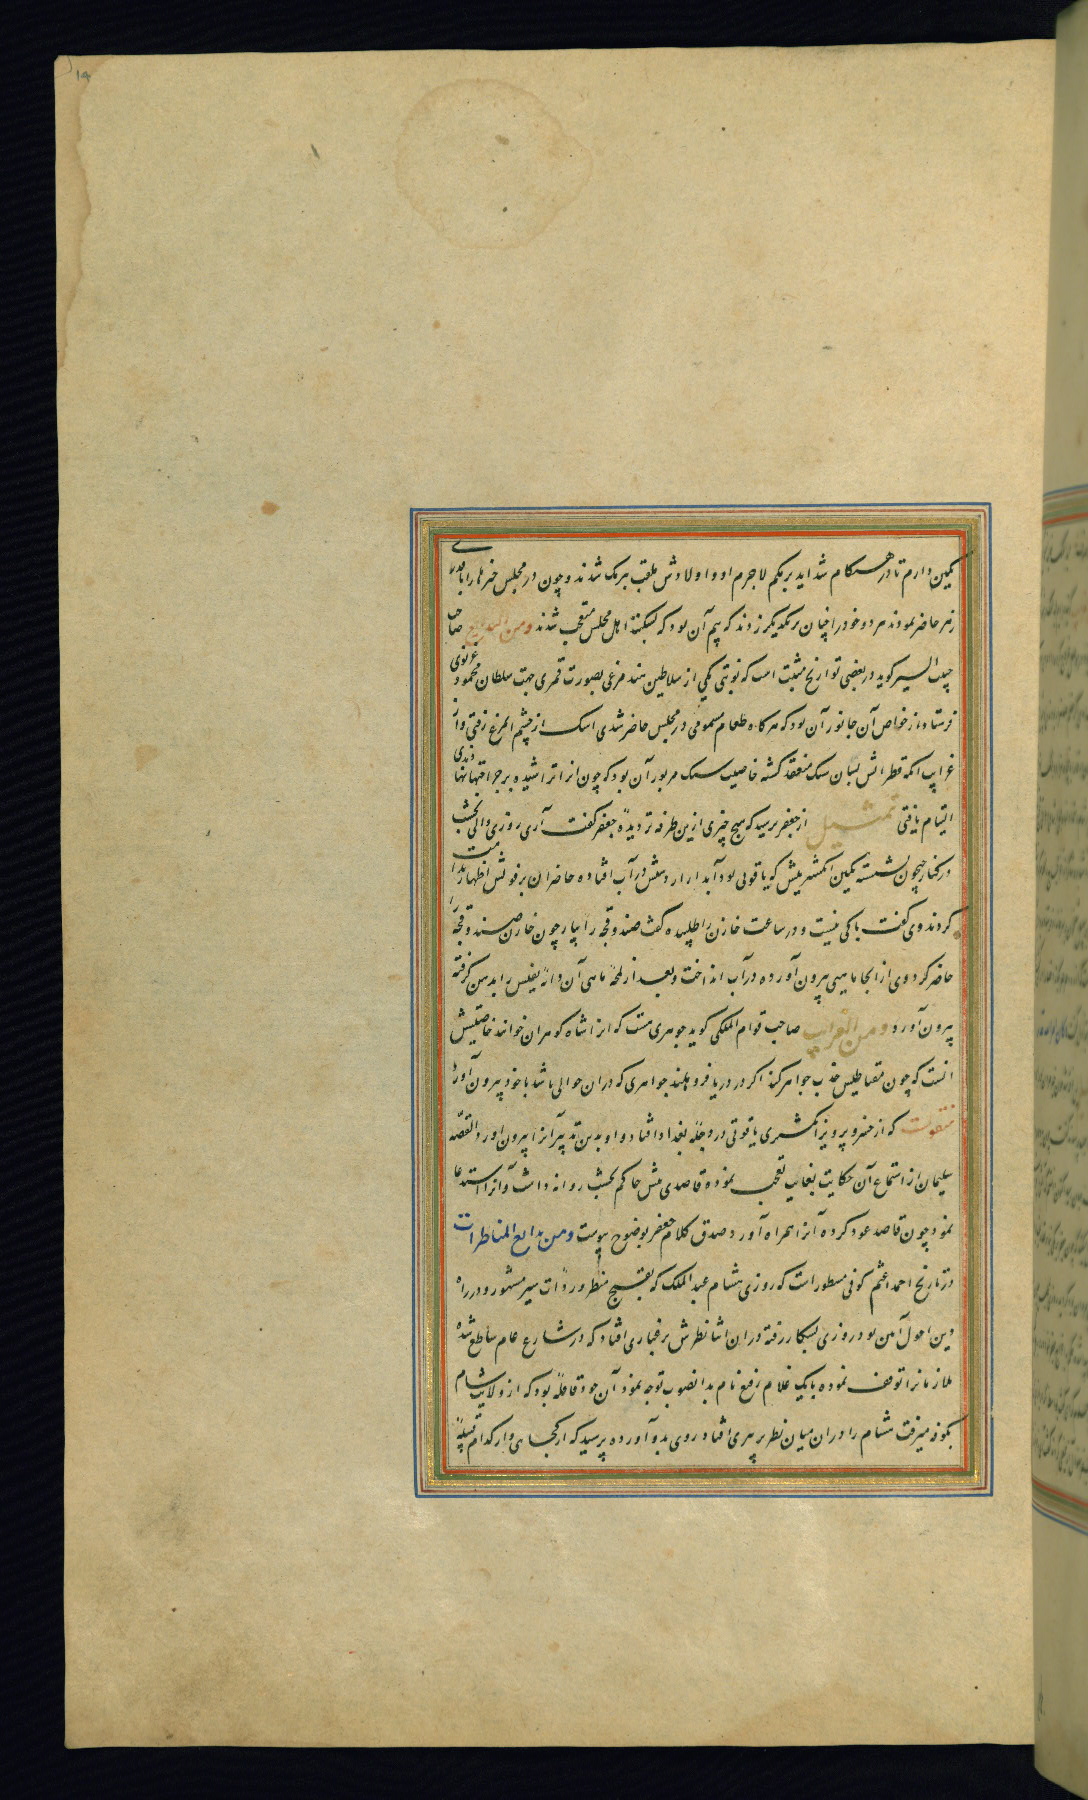 نگین دارم تا در هنگام شداید برمکم لاجرم او و اولادش ملقب ببرمک شدند و چون در مجلس خبرها را با
زهر حاضر نمودند هر دو خود را چنان بر یکدیگر زدند که بیم آن بود که بشکنند اهل مجلس متعجب شدند ومن البدایع صاحب
حبیب السیر گوید در بعضی تواریخ مثبت است که نوبتی یکی از سلاطین هند مرغی بصورت قمری جهت سلطان محمود غزنوی
فرستاد از خواص آن جانور آن بود که هرگاه طعام مسمومی در مجلس حاضر شدی اشک از چشم آن مرغ رفتی و از
غرایب آنکه قطراتش بسان سنگ منعقد گشته خاصیت سنگ مزبور آن بود که چون انرا تراشیده بر جراحتها نهادندی
التیام یافتی تمثیل از جعفر پرسید که هیچ چیزی ازین طرفه تر دیدهٔ جعفر گفت آری روزی والی نخشب
در کنار جیحون نشسته نگین انگشتریش که یاقوتی بود آبدار از دستش در آب افتاده حاضران بر فوتش اظهار ندامت
کردند وی گفت باکی نیست و در ساعت خازن را طلبیده گفت صندوقچه را بیار چون خازن صندوقچه را
حاضر کرد وی از انجا ماهیی بیرون آورده در آب انداخت و بعد از لمحهٔ ماهی آن دانهٔ نفیس را بدهن گرفته
بیرون آورد ومن الغرایب صاحب قوام الملکی گوید جوهری هست که انرا شاه گوهران خوانند خاصیتش
انست که چون مقناطیس جذب جواهر کند اگر در دریا فرو هلند جواهری که دران حوالی باشد با خود بیرون آورد
منقولست که از خسرو پرویز انگشتری یاقوتی در دجله بغداد افتاد و او بدین تدبیر آنرا بیرون آورد القصه
سلیمان از استماع آن حکایت بغایت تعجب نموده قاصدی پیش حاکم نخشب روانه داشت و آنرا استدعا
نمود چون قاصد عود کرده آنرا همراه آورد صدق کلام جعفر بوضوح پیوست ومن بدایع المناظرات
در تاریخ احمد اعثم کوفی مسطور است که روزی هشام عبد الملک که بقبح منظر و رداءت سیر مشهور و در راه
دین احول آمن بود روزی بشکار رفته دران اثنا نظرش بر غباری افتاد که در شارع عام ساطع شده
ملازمانرا توقف نموده با یک غلام رفع نام بدانصوب توجه نمود آن خود قافلهٔ بود که از ولایت شام
بکوفه میرفت هشام را دران میان نظر بر پیری افتاد روی بدو آورده پرسید که از کجایی و از کدام قبیلهٔ